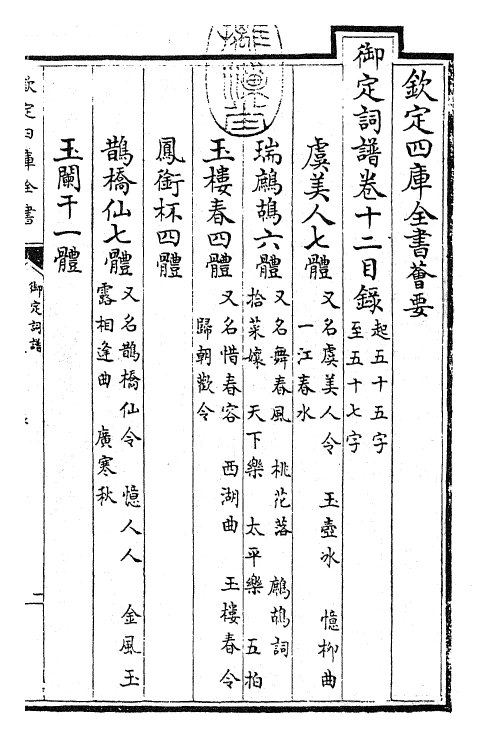 欽定四庫全書薈要
御定詞譜卷十二目錄 起五十五字
至五十七字
虞美人七體 又名虞美人令 玉壺冰 憶柳曲
一江春水
瑞鷓鴣六體 又名舞春風 桃花落 鷓鴣詞
拾菜孃 天下樂 太平樂 五拍
玉樓春四體 又名惜春容 西湖曲 玉樓春令
歸朝歡令
鳳銜杯四體
鵲橋仙七體 又名鵲橋仙令 憶人人 金風玉
露相逢曲 廣寒秋
玉闌干一體
欽定四庫全書
御定詞譜